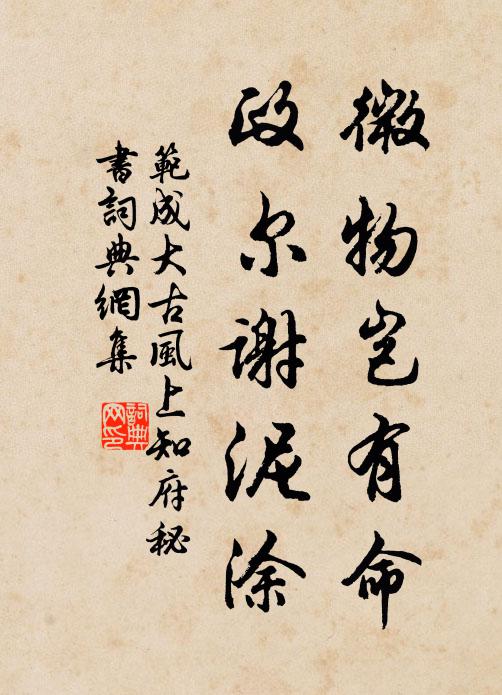 微物岂有命
政尔谢泥涂
範成大古風上知府秘
書詞典網集
詞典网印